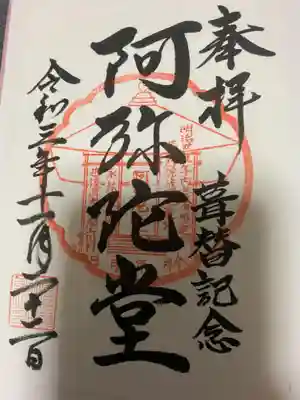 奉拝
葺替記念
阿弥陀堂
令和三年十一月二十二日